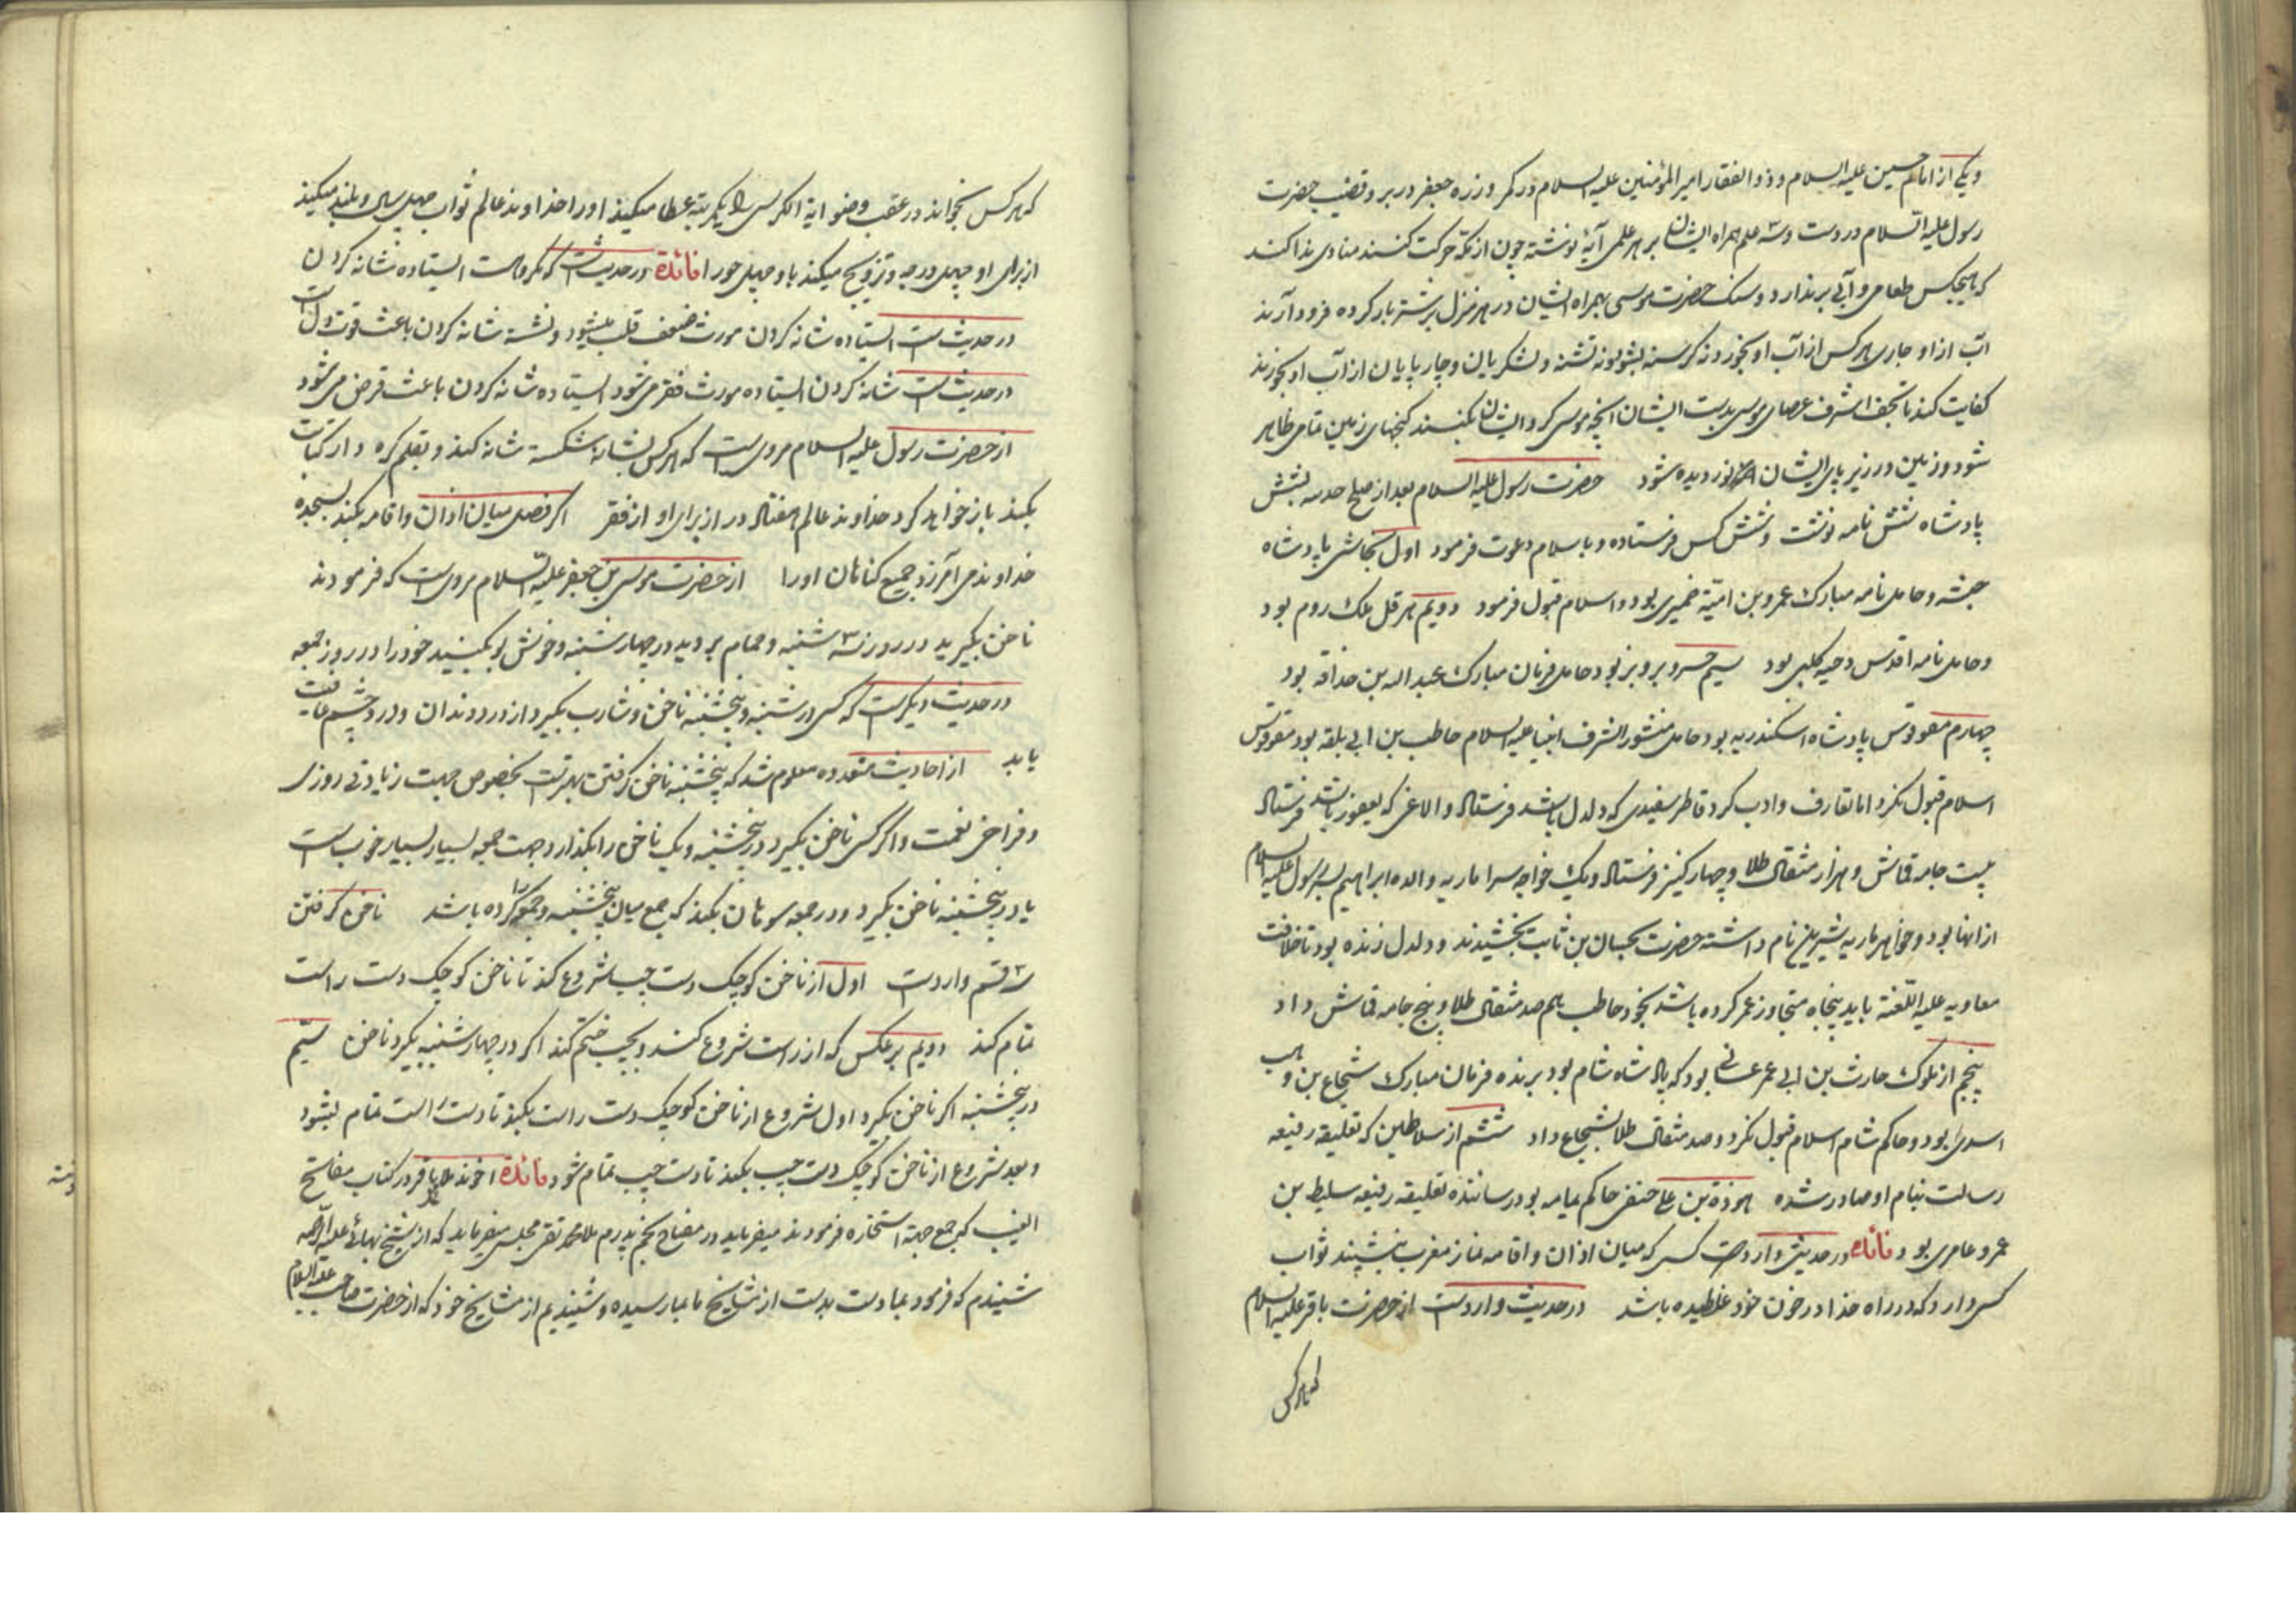 ویکی از امام حسین علیه السلام و ذوالفقار امیرالمؤمنین علیه السلام در کمر و زره جعفر در بر و قضیب حضرت
رسول علیه السلام در دست وسه علم همراه ایشان بر هر علمی آیۀ نوشته چون از مکه حرکت کنند منادی ندا کند
که هیچکس طعامی و آبی برندارد و سنک حضرت موسی بهمراه ایشان در هر منزل برشتر بار کرده فرود آرند
آب از او جاری هر کس از آب او بخورد نه کرسنه بشود نه تشنه و لشکریان و چارپایان از آب او بخورند
کفایت کند تا نجف اشرف عصای موسی بدست ایشان آنچه موسی کرد ایشان بکنند کنجهای زمین تمامی ظاهر
شود و زمین در زیر پای ایشان نوردیده شود حضرت رسول علیه السلام بعد از صلح حدیبیه بشش
پادشاه شش نامه نوشت و شش کس فرستاده و باسلام دعوت فرمود اول نجاشی پادشاه
حبشه و حامل نامه مبارک عمرو بن امیّه ضمیری بود و اسلام قبول فرمود دویم هرقل ملک روم بود
و حامل نامه اقدس دحیه کلبی بود سیم خسرو پرویز بود حامل فرمان مبارک عبد اله بن حذاقه بود
چهارم مقوقس پادشاه اسکندریه بود حامل منشور اشرف انبیا علیه السلام حاطب بن ابی بلقه بود مقوقس
اسلام قبول نکرد اما تعارف و ادب کرد قاطر سفیدی که دلدل باشد فرستاد و الاغی که یعفور باشد فرستاد
بیست جامه قماش و هزار مثقال طلا و چهار کنیز فرستاد ویک خواجه سرا ماریه والده ابراهیم پسر رسول علیه السلام
از انها بود و خواهر ماریه شیرین نام داشته حضرت بحسان بن ثابت بخشیدند و دلدل زنده بود تا خلافت
معاویه علیه اللعنة باید پنجاه متجاوز عمر کرده باشد بخود حاطب هم صد مثقال طلا و پنج جامه قماش داد
پنجم از ملوک حارث بن ابی عمر غسانی بود که پادشاه شام بود برنده فرمان مبارک شجاع بن وهب
اسدی بود و حاکم شام اسلام قبول نکرد و صد مثقال طلا بشجاع داد ششم از سلاطین که تعلیقه رفیعه
رسالت بنام او صادر شده هوذة بن علی حنفی حاکم یمامه بود رساننده تعلیقه رفیعه سلیط بن
عمرو عامری بود فائده در حدیثی وارد است کسی که میان اذان و اقامه نماز مغرب بنشیند ثواب
کسی دارد که در راه خدا در خون خود غلطیده باشد در حدیث وارد است از حضرت باقر علیه السلام
که هر کس
که هر کس بخواند در عقب وضو ایة الکرسی را یکمرتبه عطا میکند او را خداوند عالم ثواب چهل سال و بلند میکند
از برای او چهل درجه و تزویج میکند باو چهل حور ا فائدة در حدیث است که مکروهست ایستاده شانه کردن
در حدیث است ایستاده شانه کردن مورث ضعف قلب میشود و نشسته شانه کردن باعث قوت دل است
در حدیث است شانه کردن ایستاده مورث فقر می شود ایستاده شانه کردن باعث قرض می شود
از حضرت رسول علیه السلام مروی است که هر کس بشانه شکسته شانه کند و بقلم کره دار کتابت
بکند باز خواهد کرد خداوند عالم هفتاد در از برای او از فقر اکر فصل میان اذان و اقامه بکند بسجده
خداوند می آمرزد جمیع کناهان او را از حضرت موسی بن جعفر علیه السلام مروی است که فرمودند
ناخن بگیرید در روز سه شنبه و حمام بروید در چهارشنبه و خوش بو بکنید خود را در روز جمعه
در حدیث دیکر است که کسی در شنبه و پنجشنبه ناخن و شارب بگیرد از درد دندان و درد چشم عافیت
یابد از احادیث متعدده معلوم شد که پنجشنبه ناخن گرفتن بهتر است بخصوص جهت زیادتی روزی
و فراخی نعمت و اگر کسی ناخن بگیرد در پنجشنبه و یک ناخن را بگذارد جهت جمعه بسیار بسیار خوب است
یا در پنجشنبه ناخن بگیرد و در جمعه سوهان بکند که جمع میان پنجشنبه و جمعه کرده باشد ناخن گرفتن
سه قسم وارد است اول از ناخن کوچک دست چپ شروع کند تا ناخن کوچک دست راست
تمام کند دویم بر عکس که از راست شروع کند و بچپ ختم کند اکر در چهارشنبه بگیرد ناخن سیّم
در پنجشنبه اکر ناخن بگیرد اول شروع از ناخن کوچک دست راست بکند تا دست راست تمام بشود
و بعد شروع از ناخن کوچک دست چپ بکند تا دست چپ تمام شود فائدة اخوند ملا باقر در کتاب مفاتح
الغیب که جمع جهة استخاره فرمودند میفرماید در مفتاح پنجم پدرم ملا محمد تقی مجلسی میفرماید که از شیخ بهائی علیه الرحمه
شنیدم که فرمود بما دست بدست از مشایخ ما بما رسیده و شنیدیم از مشایخ خود که از حضرت صاحب علیه السلام